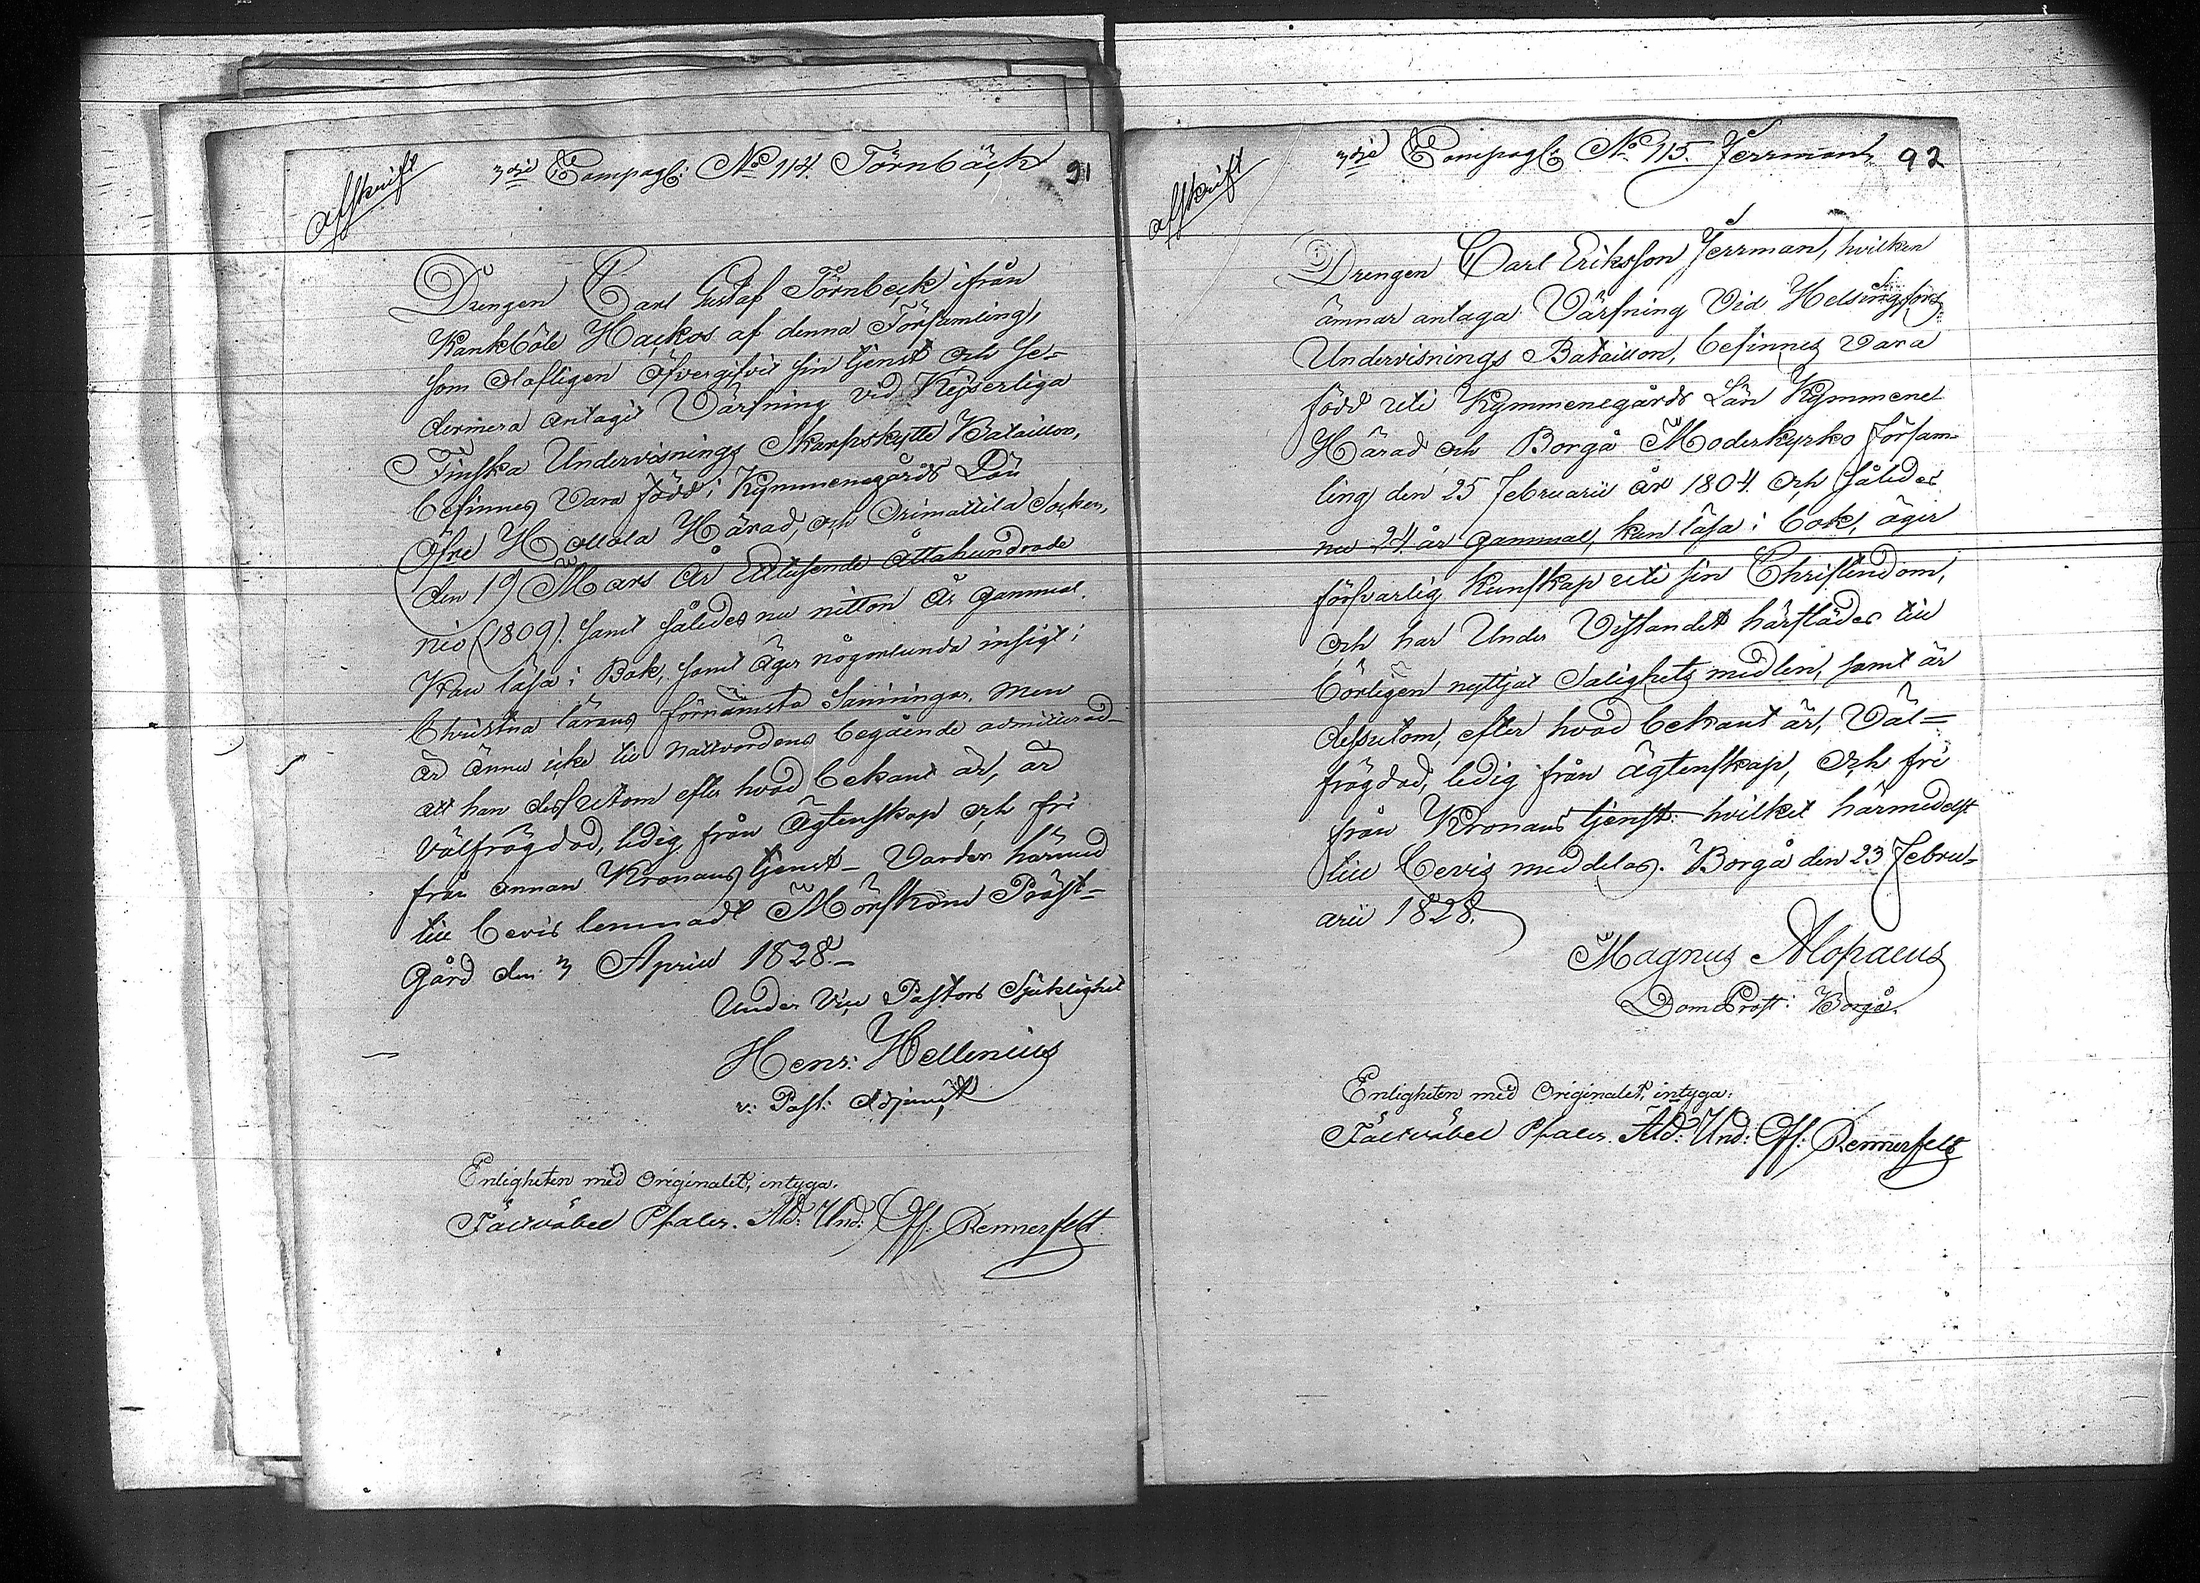 Afskrift
3dje Compag: No 114. Törnbäck
91
Drengen Carl Gustaf Törnbeck ifrån
Kankböle Hackos af denna Församling,
som Olafligen Öfvergifvit sin tjenst och se-
dermera antagit Värfning vid Kejserliga
Finska Undervisnings Skarpskytte Bataillon,
befinnes Vara född i Kymmenegårds Län
Öfre Hollola Härad, och Orimattila Socken,
den 19 Mars År Ettusende Åttahundrade
nio (1809). samt således nu nitton År gammal.
Kan läsa i Bok, samt äger någorlunda insigt i
Christna lärans förnämsta Sanningar, men
är ännu icke till nattvardens begående admitterad
att han dessutom efter hvad bekant är, är
Välfrägdad, ledig från Ägtenskap och fri
från annan Kronans tjenst – Varder härmed
till bevis lemnadt Mörskom Präst-
Gård den 3 April 1828. –
Under Vice Pastors Sjuklighet
Henr: Hellenius
v: Past: Adjunct
Enligheten med Originalet, intyga.
Fältväbel Phaler. Ald: Und: Off: Rennerfelt.
Afskrift
3dje Compag: No 115. Jerrman
92
Drengen Carl Eriksson Jerrman, hvilken
ämnar antaga Värfning Vid Helsingfors
Undervisnings Bataillon, befinnes Vara
född uti Kymmenegårds Län Kymmene
Härad och Borgå Moderkyrko Försam-
ling den 25 Februarii år 1804. och således
nu 24. år gammal, kan läsa i bok, äger
försvarlig kunskap uti sin Christendom,
och har Under Vistandet härstädes till
börligen nyttjat Salighets medlen, samt är
dessutom, efter hvad bekant är, Väl-
frägdad, ledig från ägtenskap, och fri
från Kronans tjenst: hvilket härmedelst
till bevis meddelas. Borgå den 23 Febru-
arii 1828.
Magnus Alopaeus
DomProst: Borgå.
Enligheten med Originalet, intyga:
Fältväbel Phaler. Ald: Und: Off: Rennerfelt